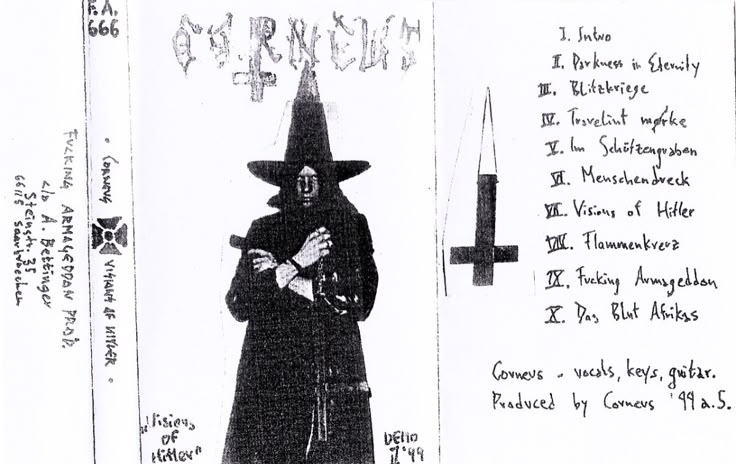 F.A.
666
FUCKING ARMAGEDDON PROD.
c/o A. Bettinger
Steinstr. 35
66115 Saarbruecken
• CORNEUS VISIONS OF HITLER •
CORNEUS
"Visions
of
Hitler"
DEMO
II '99
I. Intro
II. Darkness in Eternity
III. Blitzkriege
IV. Travelint mørke
V. Im Schützengraben
VI. Menschendreck
VII. Visions of Hitler
VIII. Flammenkreuz
IX. Fucking Armageddon
X. Das Blut Afrikas
Corneus - vocals, keys, guitar.
Produced by Corneus '99 a.S.